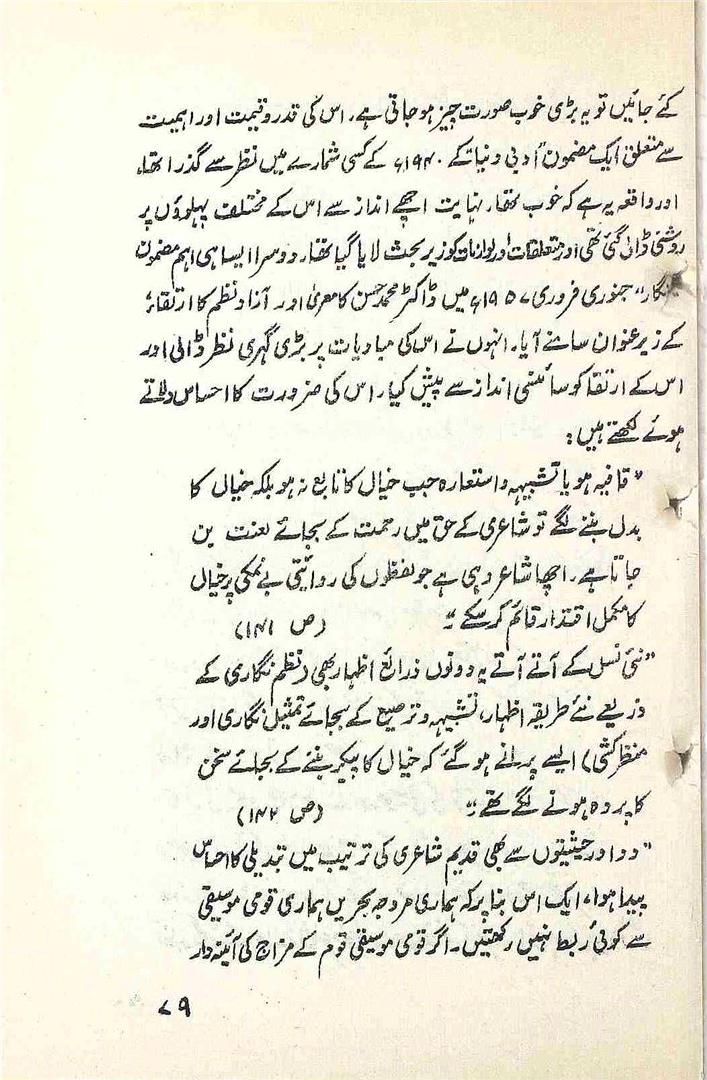 کئے جائیں تو یہ بڑی خوب صورت چیز ہو جاتی ہے۔ اس کی قدر و قیمت اور اہمیت
سے متعلق ایک مضمون "ادبی دنیا کے ۱۹۴۰ء کے کسی شمارے میں نظر سے گذرا تھا۔
اور واقعہ یہ ہے کہ خوب تھا، نہایت اچھے انداز سے اس کے مختلف پہلوؤں پر
روشنی ڈالی گئی تھی اور متعلقات اور لوازمات کو زیرِ بحث لایا گیا تھا۔ دوسرا ایسا ہی اہم مضمون
نگار" جنوری فروری ۱۹۵۷ء میں ڈاکٹر محمد حسن کا معریٰ اور آزاد نظم کا ارتقاء،
کے زیرِ عنوان سامنے آیا۔ انہوں نے اس کی مبادیات پر بڑی گہری نظر ڈالی اور
اس کے ارتقا کو سائنسی انداز سے پیش کیا، اس کی ضرورت کا احساس دلاتے
ہوئے لکھتے ہیں:
"قافیہ ہو یا تشبیہہ و استعارہ جب خیال کا تابع نہ ہو بلکہ خیال کا
بدل بننے لگے تو شاعری کے حق میں رحمت کے بجائے لعنت بن
جاتا ہے۔ اچھا شاعر وہی ہے جو لفظوں کی روائتی بے نمکی پر خیال
کا مکمل اقتدار قائم کر سکے۔" (ص ۱۴۱)
"نئی نسل کے آتے آتے یہ دونوں ذرائع اظہار بھی (نظم نگاری کے
ذریعے نئے طریقہ اظہار، تشبیہہ و ترصیع کے بجائے تمثیل نگاری اور
منظر کشی) ایسے پرانے ہو گئے کہ خیال کا پیکر بننے کے بجائے سخن
کا پردہ ہونے لگے تھے۔" (ص ۱۴۲)
"دو اور حیثیتوں سے بھی قدیم شاعری کی ترتیب میں تبدیلی کا احساس
پیدا ہوا، ایک اس بنا پر کہ ہماری مروجہ بحریں ہماری قومی موسیقی
سے کوئی ربط نہیں رکھتیں۔ اگر قومی موسیقی قوم کے مزاج کی آئینہ دار
۷۹